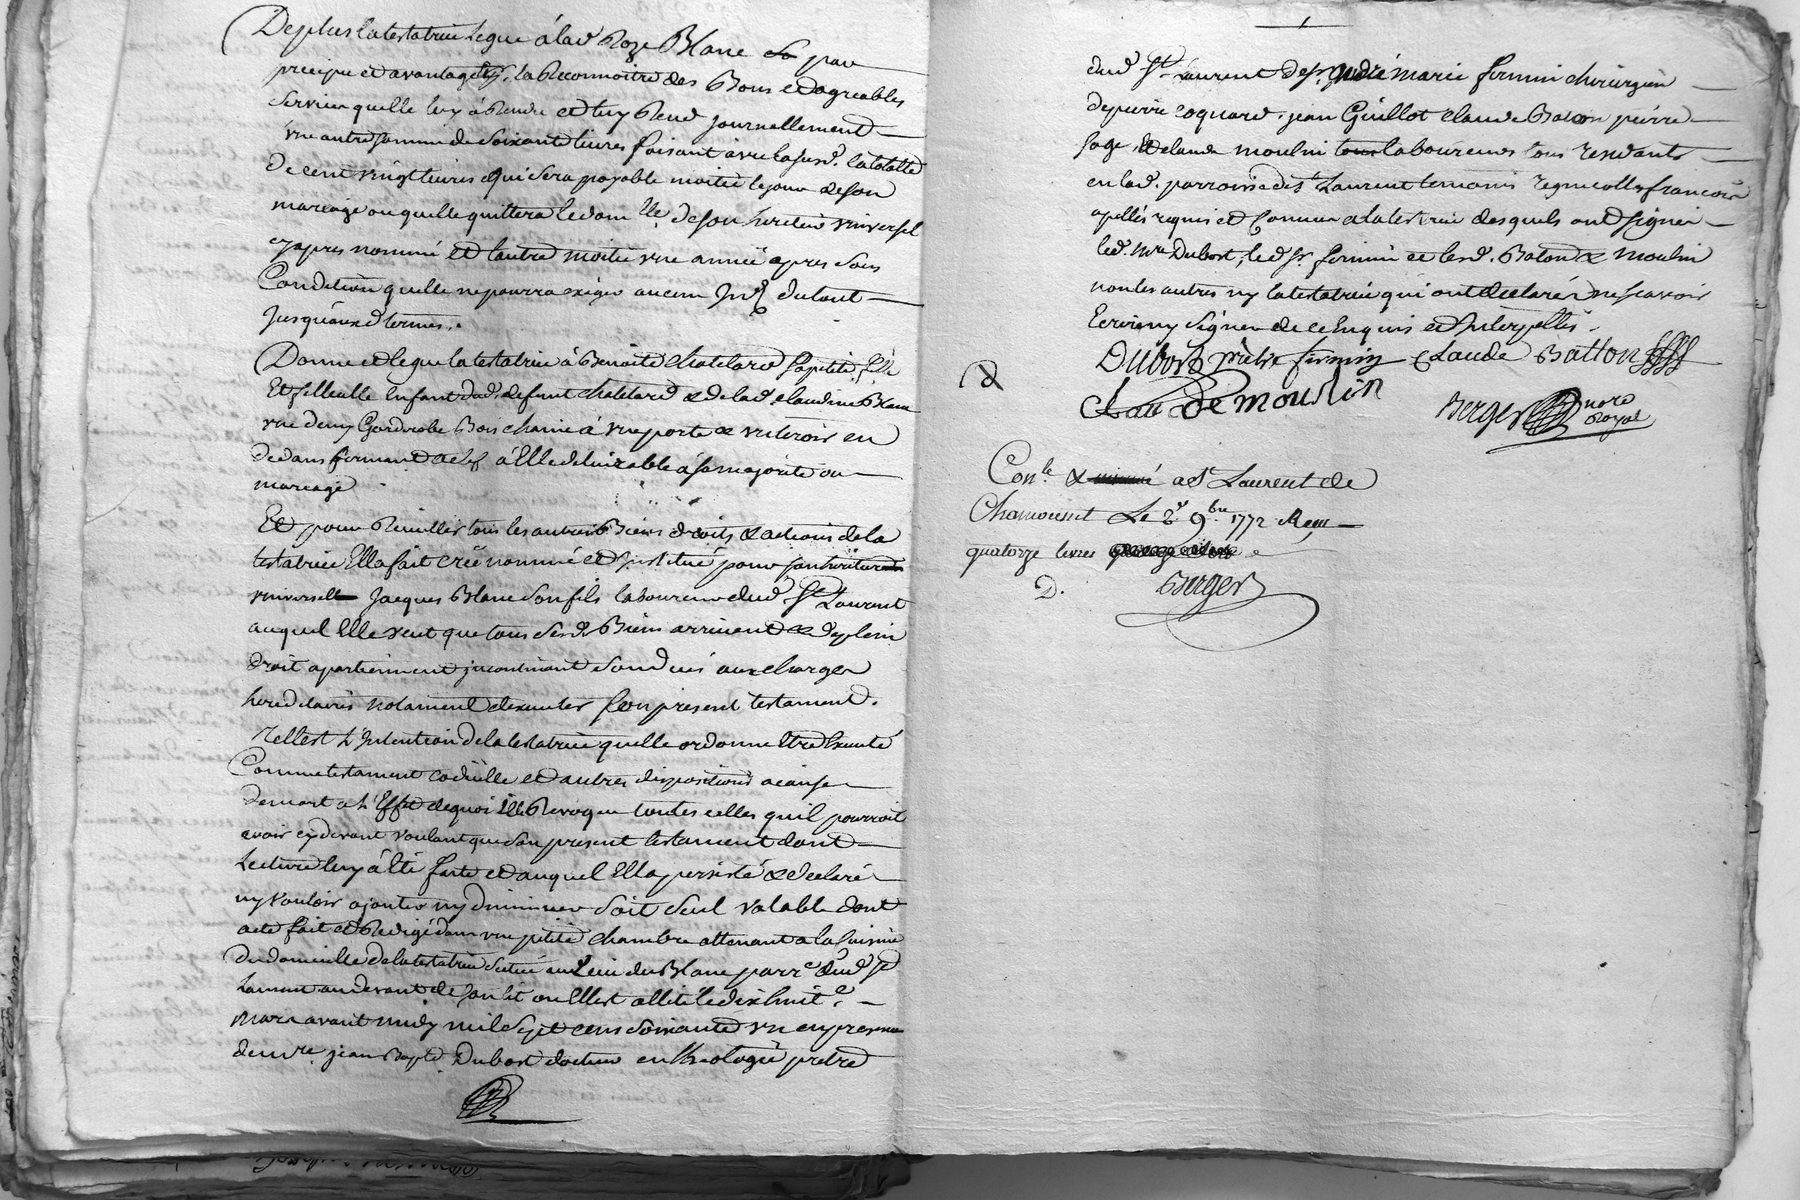 De plus la testatrice Legue à lad. Roze Blanc par
precipu et avantage, la Reconnoitre des Bons et agreables
Services quelle luy à Rendu et luy Rend journellement
une autre somme de soixante livres faisant avec la susd. la totalité
De cent vingt livres qui sera payable moitié le jour de son
mariage ou quelle quittera le dom.lle de son heritier universel
cy apres nommé et l'autre moitié une année apres sous
Condition quelle ne pourra exiger aucun du tout
jusquauxd termes.
Donne et legue la testatrice à Benoite Chatelard sa petite fille
Et filleulle Enfant dud. defunt Chatelard & de lad. Claudine Blanc
une demy Garderobe Bois chaine à une porte & un tiroir en
dedans fermant à clef à Elle delivrable à sa majorité ou
mariage
Et pour Recuillir tous les autres Biens droits & actions de la
testatrice Ella fait créé nommé et Institué pour son heritier
universelle Jacques Blanc son fils laboureur dud St Laurent
auquel Elle veut que tous sesd. Biens arrivent & de plein
droit apartiennent incontinant son decès aux charges
hereditaires notament dexecuter son present testament.
Telle est L'Intention de la testatrice quelle ordonne Etre Executé
Comme testament codicille et autres dispositions a cause
de mort a L'Effet de quoi Elle Revoque toutes celles quil pourroit
avoir cy devant voulant que son present testament dont
Lecture luy à Eté faite et auquel Ella persisté & declaré
ny vouloir ajouter ny diminuer soit seul valable dont
acte fait et Redigé dans une petite chambre attenant a la Cuisine
Du domicille de la testatrice Situé au Lieu du Blanc parr.e dud St
Laurent au devant de son lit ou Ellest allité le dix huit.e
Mars avant midy mil sept cens soixante un en presence
de mre. jean Bapte. Dubost docteur en theologie pretre
dud St. Laurent de Sr. andré marie firmin chirurgien
de pierre coquard, jean Guillot claude Baton pierre
sage, & claude moulin laboureurs tous residants
en lad. parroisse de St Laurent temoins regnicolles francois
apellés requis et Connus a la testatrice desquels ont signé
led. mre Dubost, led sr. firmin et lesd. Baton & Moulin
non les autres ny la testatrice qui ont declaré ne scavoir
Ecrire ny signer de ce Enquis et Interpellés.
Dubost prêtre firmin Claude Batton
Claude moulin Berger nore
Royal
Con.le & a St Laurent de
Chamousset Le 2e 9bre 1772 Reçu
quatorze livres
D. Berger